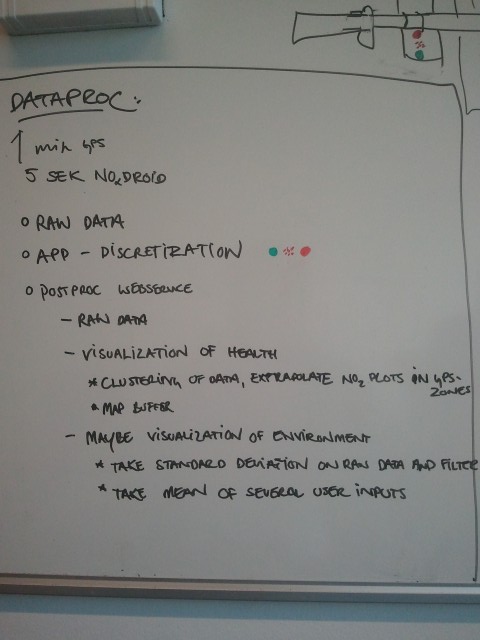 DATAPROC:
1 min GPS
5 SEK NO2DROID
o RAW DATA
o APP - DISCRETIZATION
o POSTPROC WEBSERVICE
- RAW DATA
- VISUALIZATION OF HEALTH
* CLUSTERING OF DATA, EXTRAPOLATE NO2 PLOTS IN GPS-
ZONES
* MAP BUFFER
- MAYBE VISUALIZATION OF ENVIRONMENT
* TAKE STANDARD DEVIATION ON RAW DATA AND FILTER
* TAKE MEAN OF SEVERAL USER INPUTS